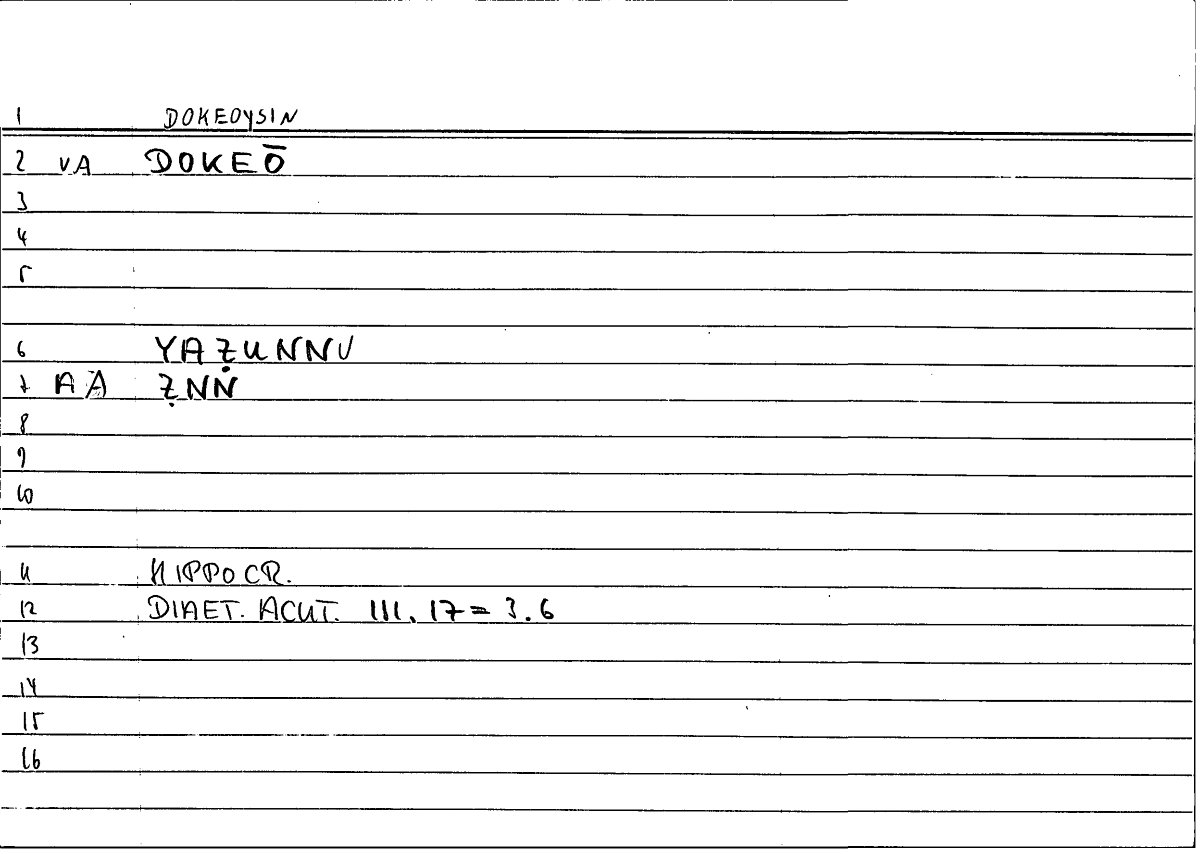 1 DOKEOYSIN
2 VA DOKEŌ
3
4
5
6 YAẒUNNU
7 AA ẒNN
8
9
10
11 HIPPOCR.
12 DIAET. ACUT. III. 17 = 3.6
13
14
15
16